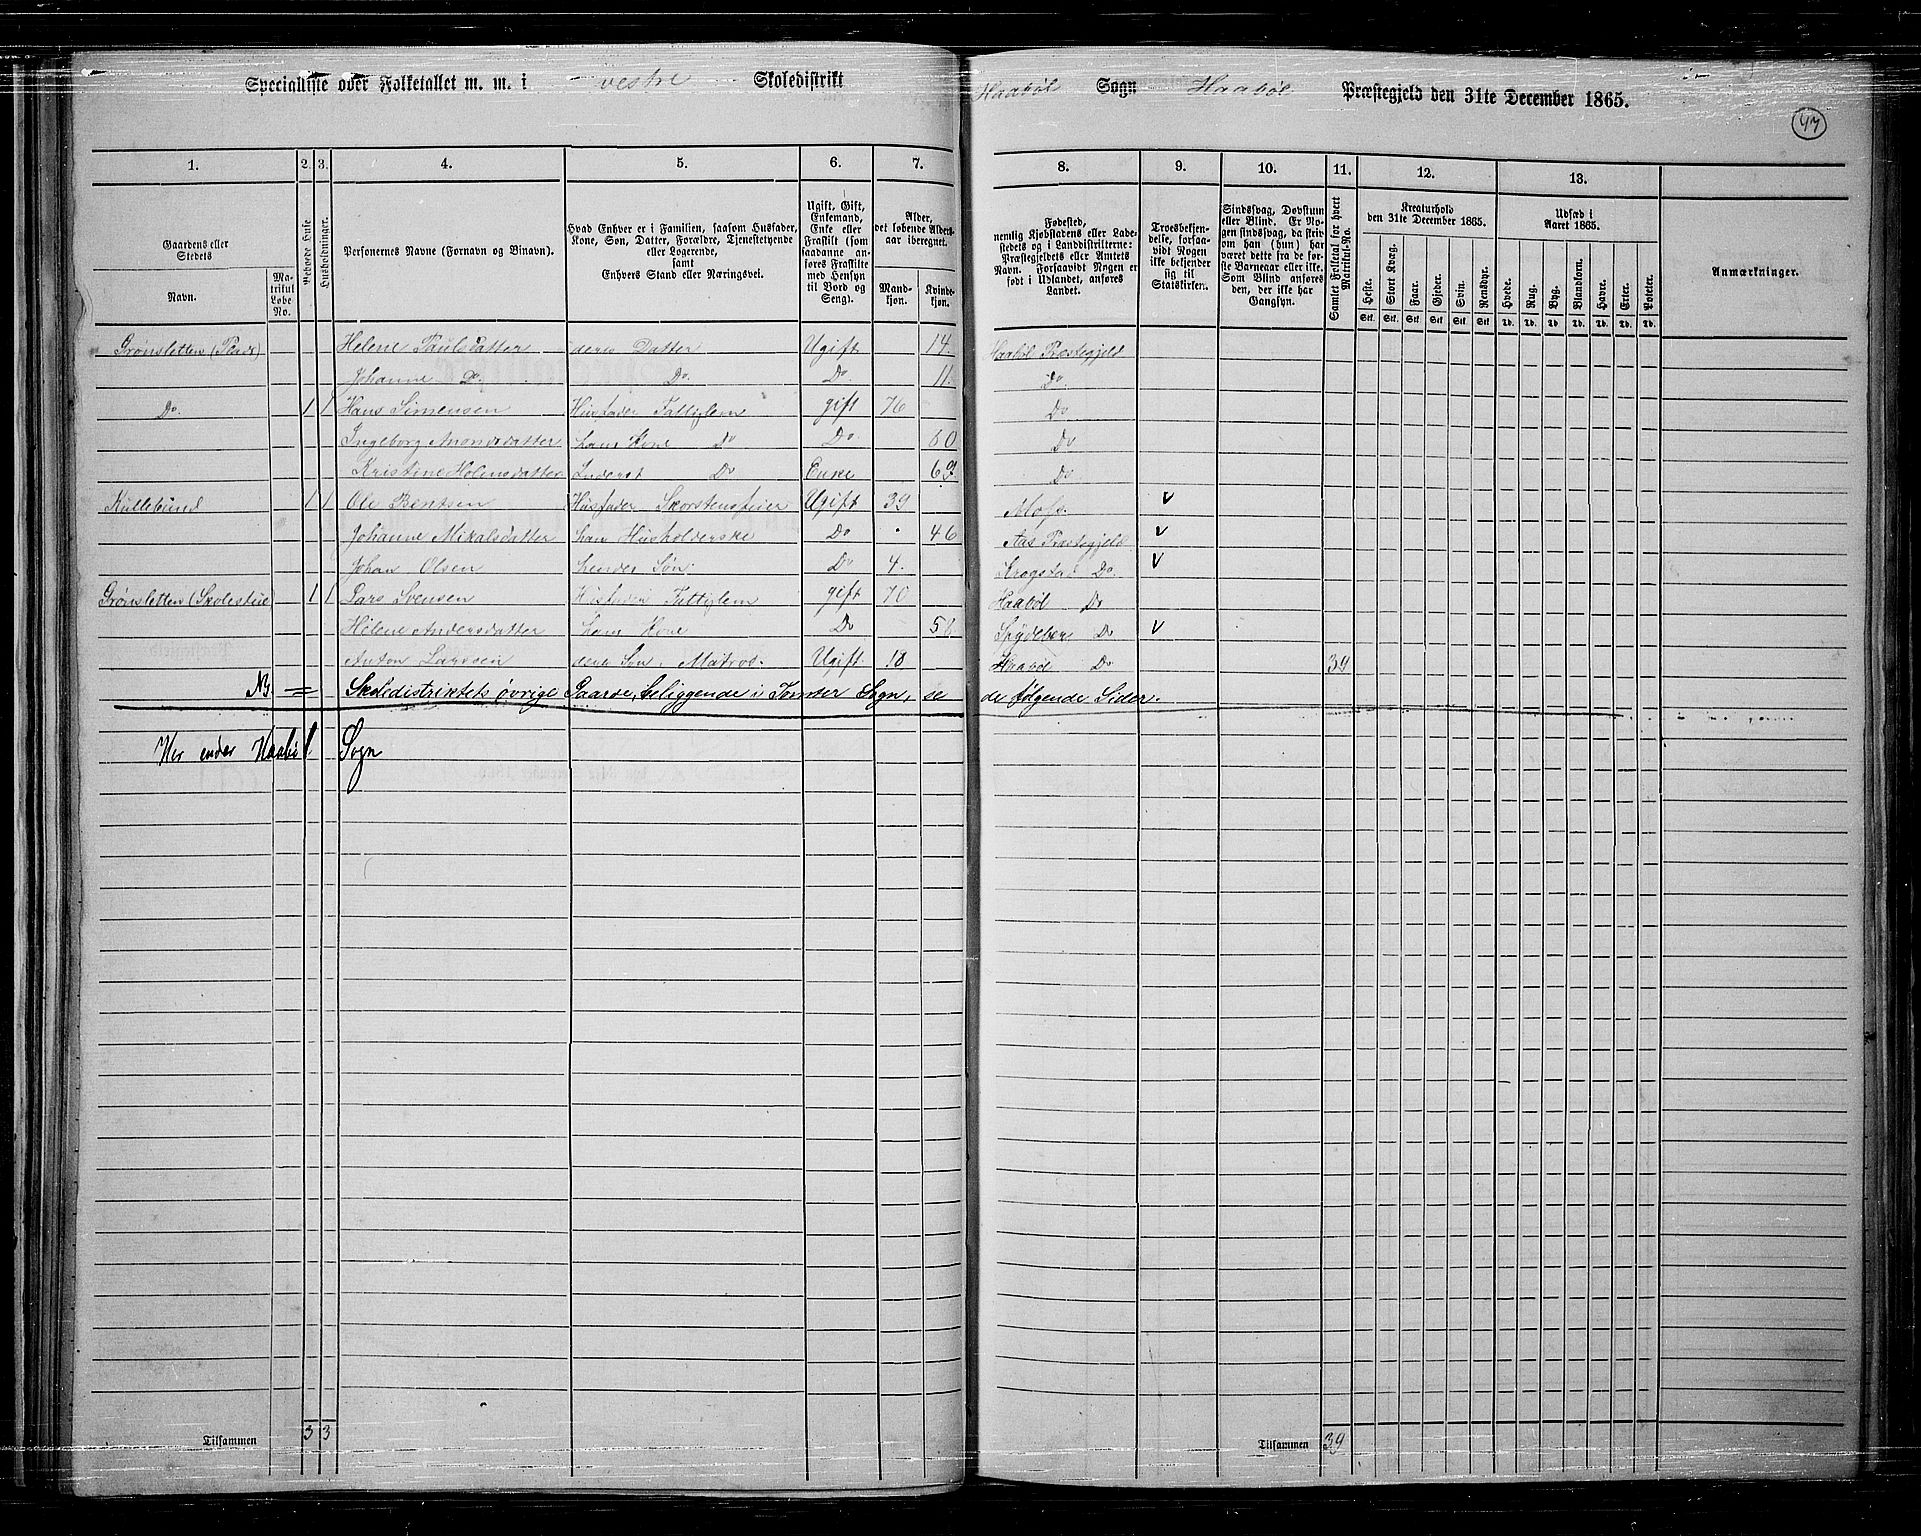 Specialliste over Folketallet m. m. i vestre Skoledistrikt Haabøl Sogn Haabøl Præstegjeld den 31te December 1865.
47
1. 2. 3. 4. 5. 6. 7. 8. 9. 10. 11. 12. 13.
Gaardens eller Stedets Navn.
Matrikul Løbe No.
Beboede Huse
Husholdninger.
Personernes Navne (Fornavn og Binavn).
Hvad Enhver er i Familien, saasom Husfader, Kone, Søn, Datter, Forældre, Tjenestetyende eller Logerende, samt Enhvers Stand eller Næringsvei.
Ugift, Gift, Enkemand, Enke eller Fraskilt (som saadanne anføres Fraskilte med Hensyn til Bord og Seng).
Alder, det løbende Alders-aar iberegnet.
Mandkjøn. Kvindekjøn.
Fødested, nemlig Kjøbstadens eller Ladestedets og i Landdistrikterne: Præstegjeldets eller Amtets Navn. Forsaavidt Nogen er født i Udlandet, anføres Landet.
Troesbekjendelse, forsaavidt Nogen ikke bekjender sig til Statskirken.
Sindssvag, Døvstum eller Blind. Er Nogen sindssvag, da skriv om han (hun) har været dette fra de første Barneaar eller ikke. Som Blind anføres den, der ikke har Gangsyn.
Samlet Folketal for hvert Matrikul-No.
Kreaturhold den 31te December 1865.
Heste. Stort Kvæg. Faar. Gjeder. Svin. Rensdyr.
Udsæd i Aaret 1865.
Hvede. Rug. Byg. Blandkorn. Havre. Erter. Poteter.
Stk. Stk. Stk. Stk. Stk. Stk. Td. Td. Td. Td. Td. Td. Td.
Anmærkninger.
Grønsletten Helene Paulsdatter deres Datter Ugift 14. Haabøl Præstegjeld
Johanne Do. Do. Do. 11. Do.
Do. 1 1 Hans Simensen Husfader Fattiglem gift 76 Do
Ingeborg hans Kone Do Do. 60 Do
Kristine Do Enke 69. Do
1 1 Ole Bentsen Husfader Skorstensfeier Ugift 39 Moss. v
Johanne Mikalsdatter hans Husholderske Do 46 Aas Præstegjeld v
Johan Olsen hendes Søn. Do 4. Kragstad Do. v
Grønsletten (Skolestue 1 1 Lars Svensen Husfader Fattiglem gift 70 Haabøl Do
Helene Andersdatter hans Kone Do Spydeberg Do v
Anton Larssen deres Søn, Matros. Ugift. 18 Haabøl Do 39
NB = Skoledistriktets øvrige Gaarde, beliggende i Tomter Sogn, se de følgende Sider.
Her ender Haabøl Sogn
Tilsammen 3 3 Tilsammen 39